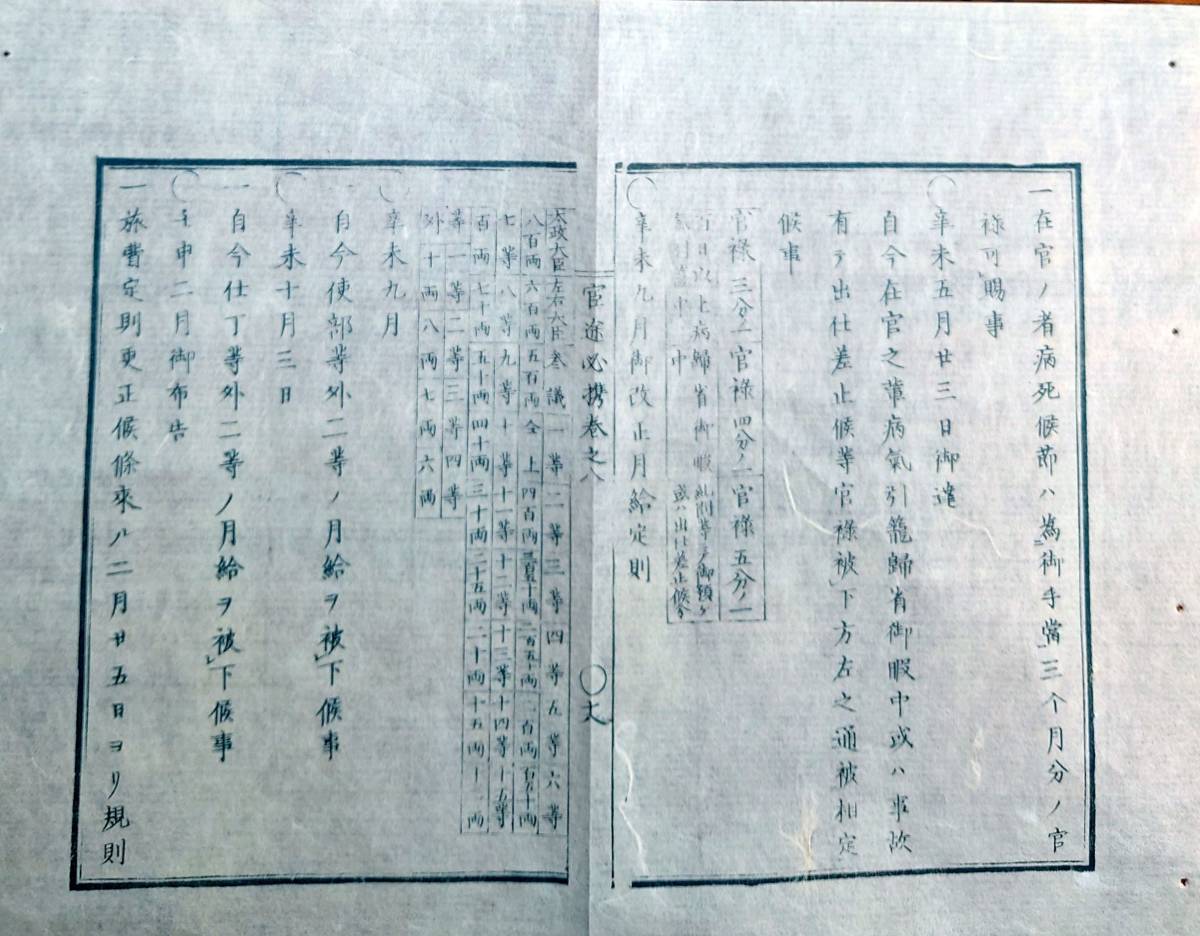 一在官ノ者病死候節ハ為御手當三个月分ノ官
祿可賜事
辛未五月廿三日御達
自今在官之輩病氣引籠歸省御暇中或ハ事故
有テ出仕差止候等官祿被下方左之通被相定
候事
官祿三分ノ一
官祿四分ノ一
官祿五分ノ一
百日以上病氣引籠中
歸省御暇中
糺問等ヲ御預ケ
或ハ出仕差止候分
辛未九月御改正月給定則
官途必携卷之八
太政大臣 左右大臣 參議 一等 二等 三等 四等 五等 六等
八百兩 六百兩 五百兩 仝上 四百兩 三百五十兩 二百五十兩 二百兩 百五十兩
七等 八等 九等 十等 十一等 十二等 十三等 十四等 十五等
百兩 七十兩 五十兩 四十兩 三十兩 二十五兩 二十兩 十五兩 十二兩
等一等 二等 三等 四等
外十兩 八兩 七兩 六兩
辛未九月
自今使部等外二等ノ月給ヲ被下候事
辛未十月三日
一自今仕丁等外二等ノ月給ヲ被下候事
壬申二月御布告
一旅費定則更正候條來ル二月廿五日ヨリ規則